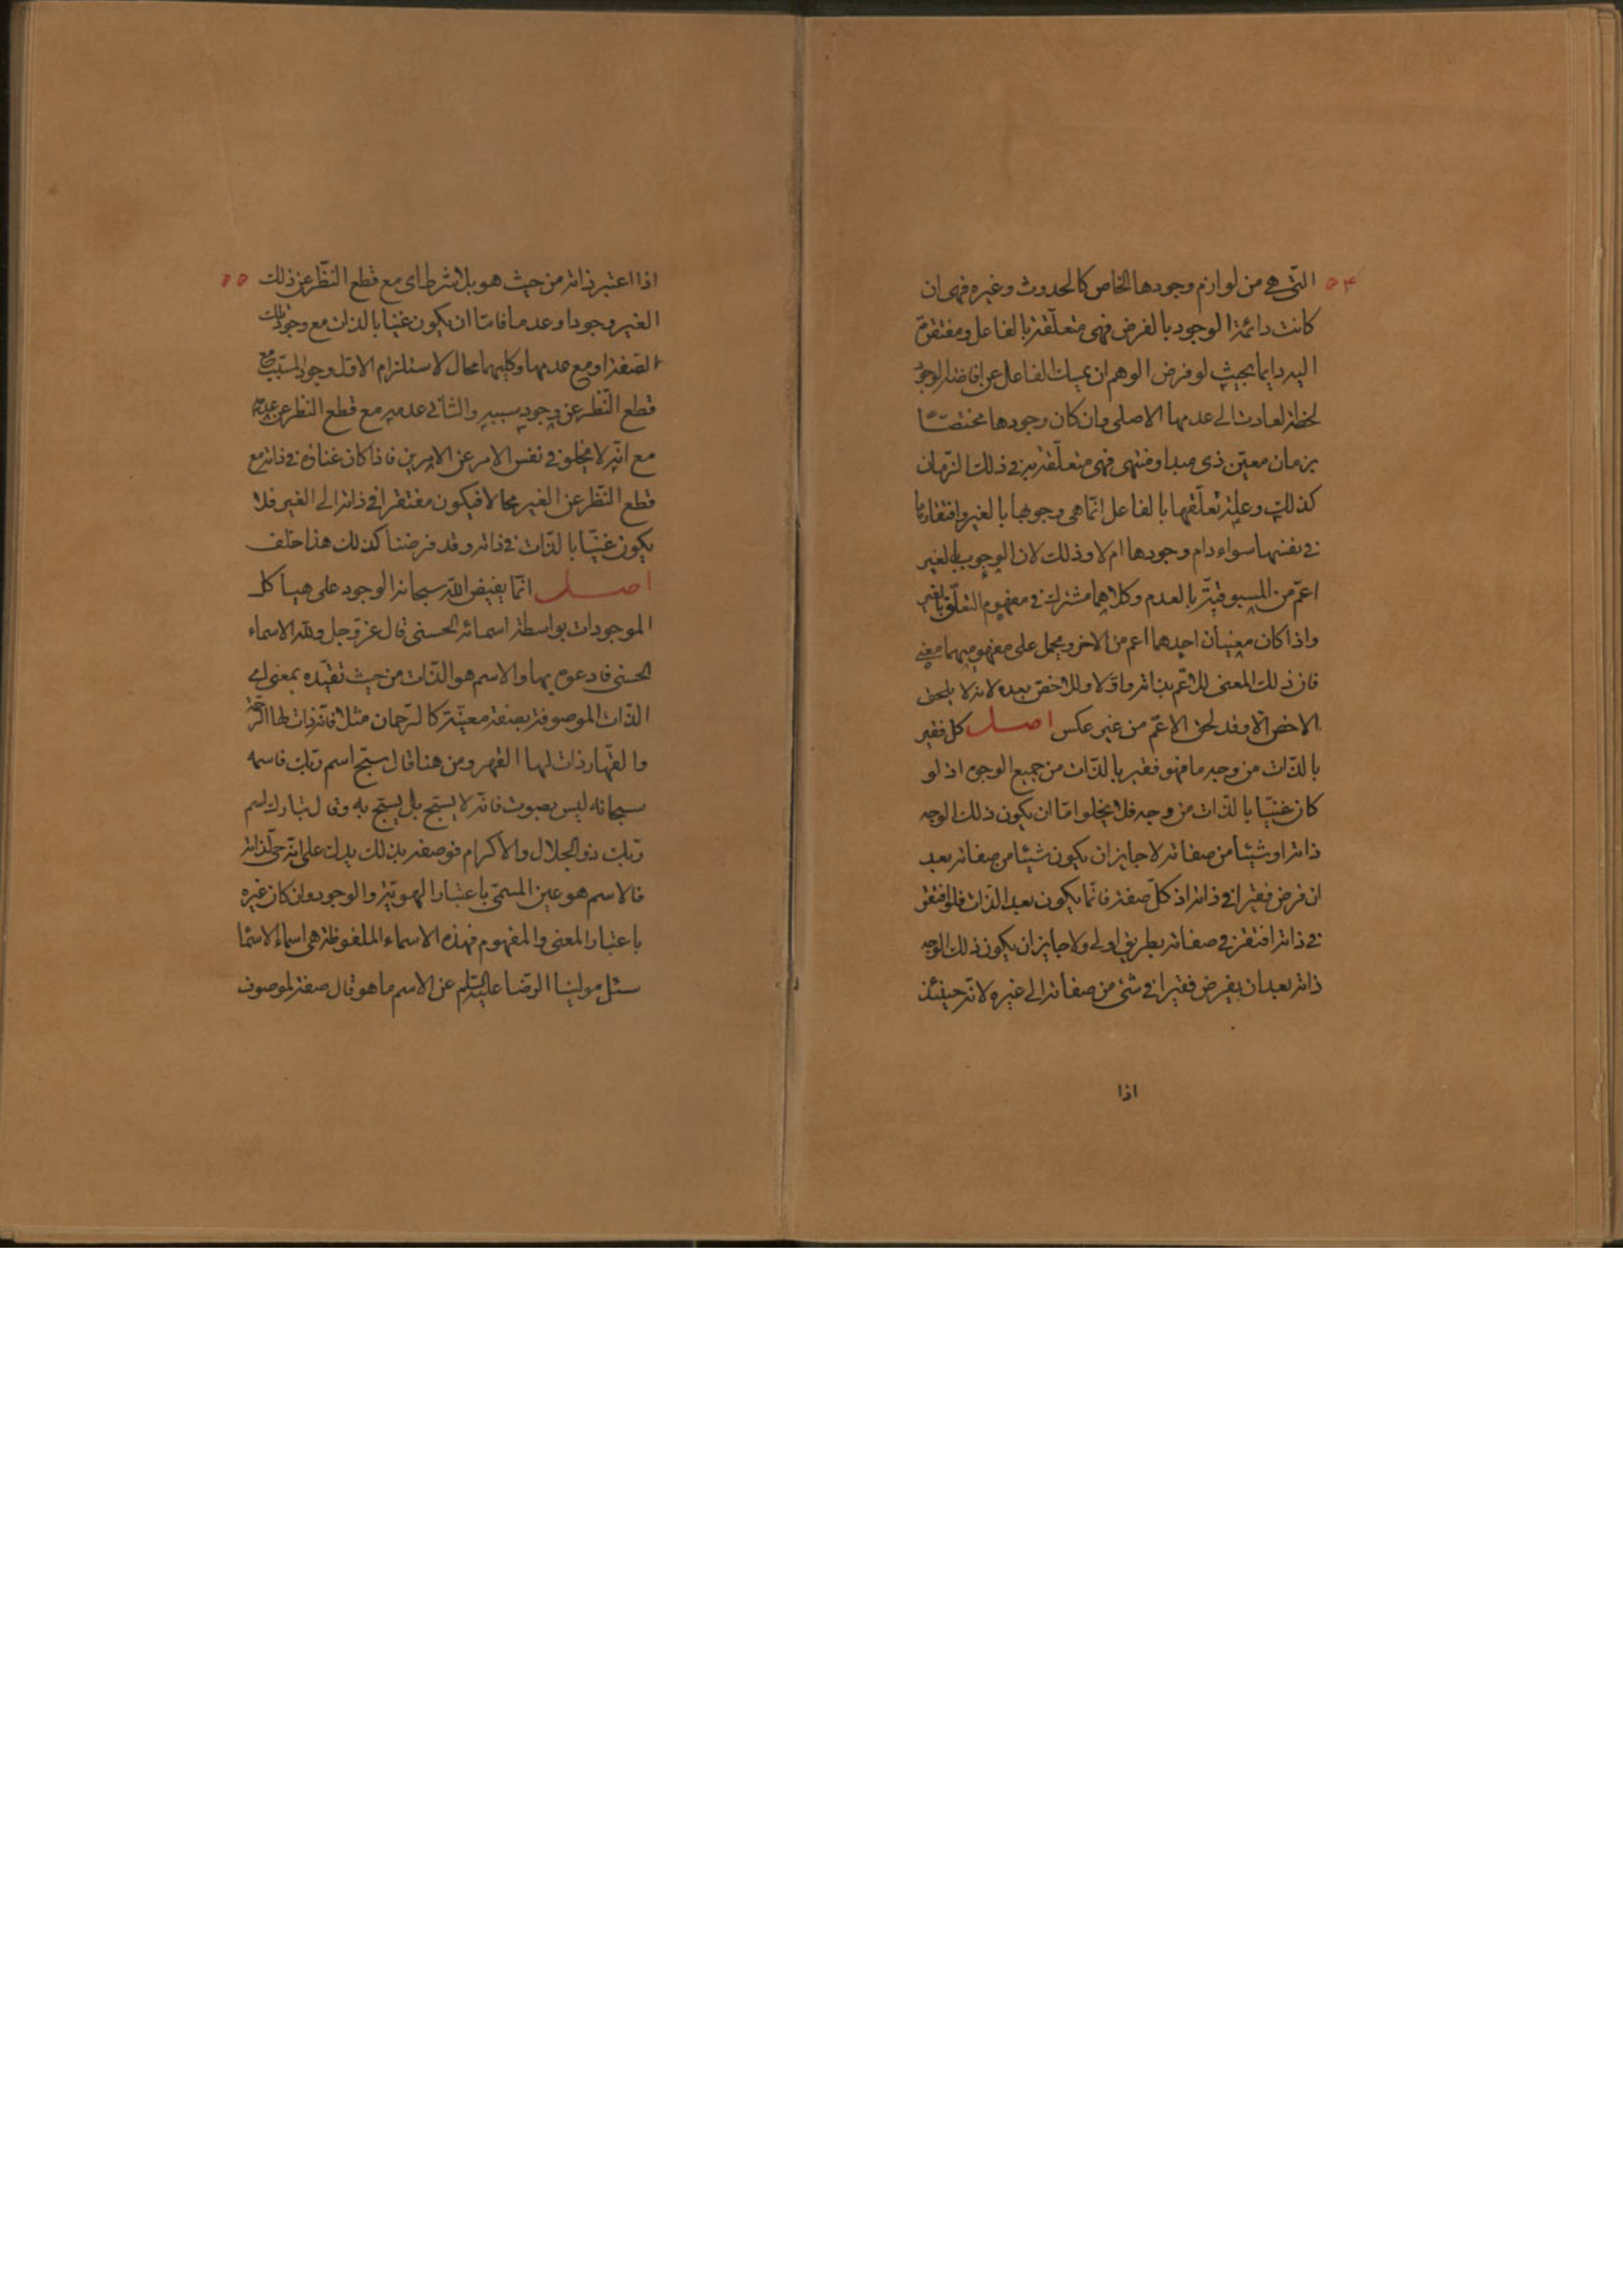 ۵۴
التی هی من لوازم وجودها الخاص کالحدوث وغیره فهی ان
کانت دائمة الوجود بالفرض فهی متعلّقة بالفاعل ومفتقرة
الیه دایما بحیث لو فرض الوهم ان یمسك الفاعل عن افاضة الوجود
لحظة لعادت الی عدمها الاصلی وان کان وجودها مختصّا
بزمان معیّن ذی مبدا ومنتهی فهی متعلّقة به فی ذلك الزمان
کذلك وعلة تعلّقها بالفاعل انّما هی وجوبها بالغیر وافتقارها
فی نفسها سواء دام وجودها ام لا وذلك لان الوجوب بالغیر
اعمّ من المسبوقیّة بالعدم وکلاهما مشترك فی مفهوم التعلّق بالغیر
واذا کان معنیان احدهما اعم من الاخر ویحمل علی مفهومیهما معنی
فان ذلك المعنی للاعّم بذاته واوّلا وللاخصّ بعده لانه لا یلحق
الاخصّ الّا وقد لحق الاعّم من غیر عکس اصل کل فقیر
بالذّات من وجه ما فهو فقیر بالذّات من جمیع الوجوه اذ لو
کان غنیّا بالذّات من وجه فلا یخلوا امّا ان یکون ذلك الوجه
ذاته او شیئا من صفاته لا جایز ان یکون شیئا من صفاته بعد
ان فرض فقیرا فی ذاته اذ کلّ صفة فانّما یکون بعد الذّات فلو افتقر
فی ذاته افتقر فی صفاته بطریق اولی ولا جایز ان یکون ذلك الوجه
ذاته بعد ان یفرض فقیرا فی شئ من صفاته الی غیره لانّه حینئذ
اذا
۵۵
اذا اعتبر ذاته من حیث هو بلا شرط ای مع قطع النّظر عن ذلك
الغیر وجودا وعدما فامّا ان یکون غنیّا بالذات مع وجود تلك
الصّفة او مع عدمها وکلیهما محال لاستلزام الاوّل وجود المسبّب مع
قطع النّظر عن وجود سببه والثانی عدمه مع قطع النظر عن عدمه
مع انّه لا یخلو فی نفس الامر عن الامرین فاذا کان غناؤه فی ذاته مع
قطع النّظر عن الغیر محالا فیکون مفتقرا فی ذاته الی الغیر فلا
یکون غنیّا بالذّات فی ذاته وقد فرضنا کذلك هذا خلف
اصل انّما یفیض اللّه سبحانه الوجود علی هیاکل
الموجودات بواسطة اسمائه الحسنی قال عزّ وجل وللّه الاسماء
الحسنی فادعوه بها والاسم هو الذّات من حیث تقیّده بمعنی ای
الذّات الموصوفة بصفة معیّنة کالرّحمان مثلا فانّه ذات لها الرّحمة
والقهّار ذات لها القهر ومن هنا قال سبّح اسم ربّك فاسمه
سبحانه لیس بصوت فانّه لا یسبّح بل یسبّح به وقال تبارك اسم
ربّك ذو الجلال والاکرام فوصفه بذلك یدل علی انّه حیّ لذاته
فالاسم هو عین المسمّی باعتبار الهویّة والوجود وان کان غیره
باعتبار المعنی والمفهوم فهذه الاسماء الملفوظة هی اسماء الاسماء
سئل مولینا الرّضا علیه السّلم عن الاسم ما هو قال صفة لموصوف